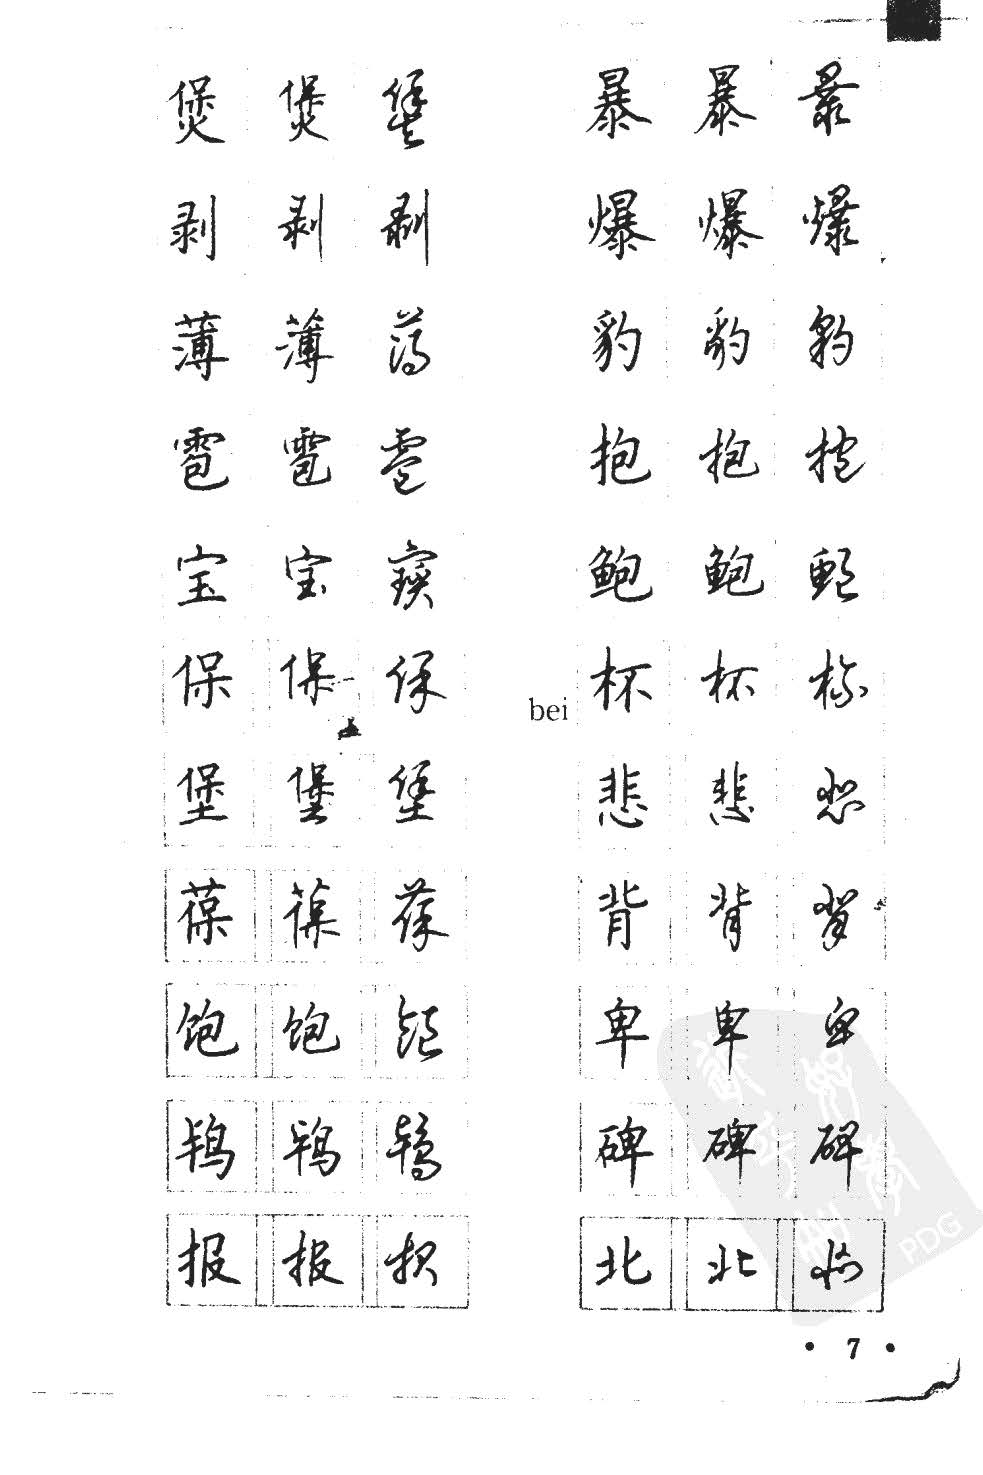 煲 煲 煲
剥 剥 剥
薄 薄 薄
雹 雹 雹
宝 宝 寳
保 保 保
堡 堡 堡
葆 葆 葆
饱 饱 饱
鸨 鸨 鸨
报 报 报
暴 暴 暴
爆 爆 爆
豹 豹 豹
抱 抱 抱
鲍 鲍 鲍
bei 杯 杯 杯
悲 悲 悲
背 背 背
卑 卑 卑
碑 碑 碑
北 北 北
PDG
• 7 •